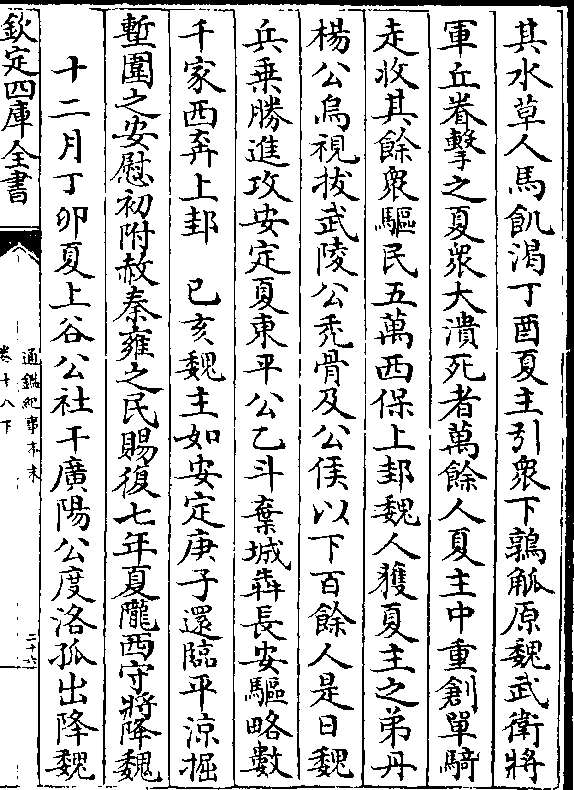 其水草人馬飢渴丁酉夏主引衆下鶉觚原魏武衛將
軍丘眷擊之夏衆大潰死者萬餘人夏主中重創單騎
走收其餘衆驅民五萬西保上邽魏人獲夏主之弟丹
楊公烏視拔武陵公禿骨及公侯以下百餘人是日魏
兵乗勝進攻安定夏東平公乙斗棄城奔長安驅略數
千家西奔上邽　已亥魏主如安定庚子還臨平涼掘
塹圍之安慰初附赦秦雍之民賜復七年夏隴西守將降魏
十二月丁卯夏上谷公社干廣陽公度洛孤出降魏
欽定四庫全書
通鑑紀事本末
卷十八下
三十六